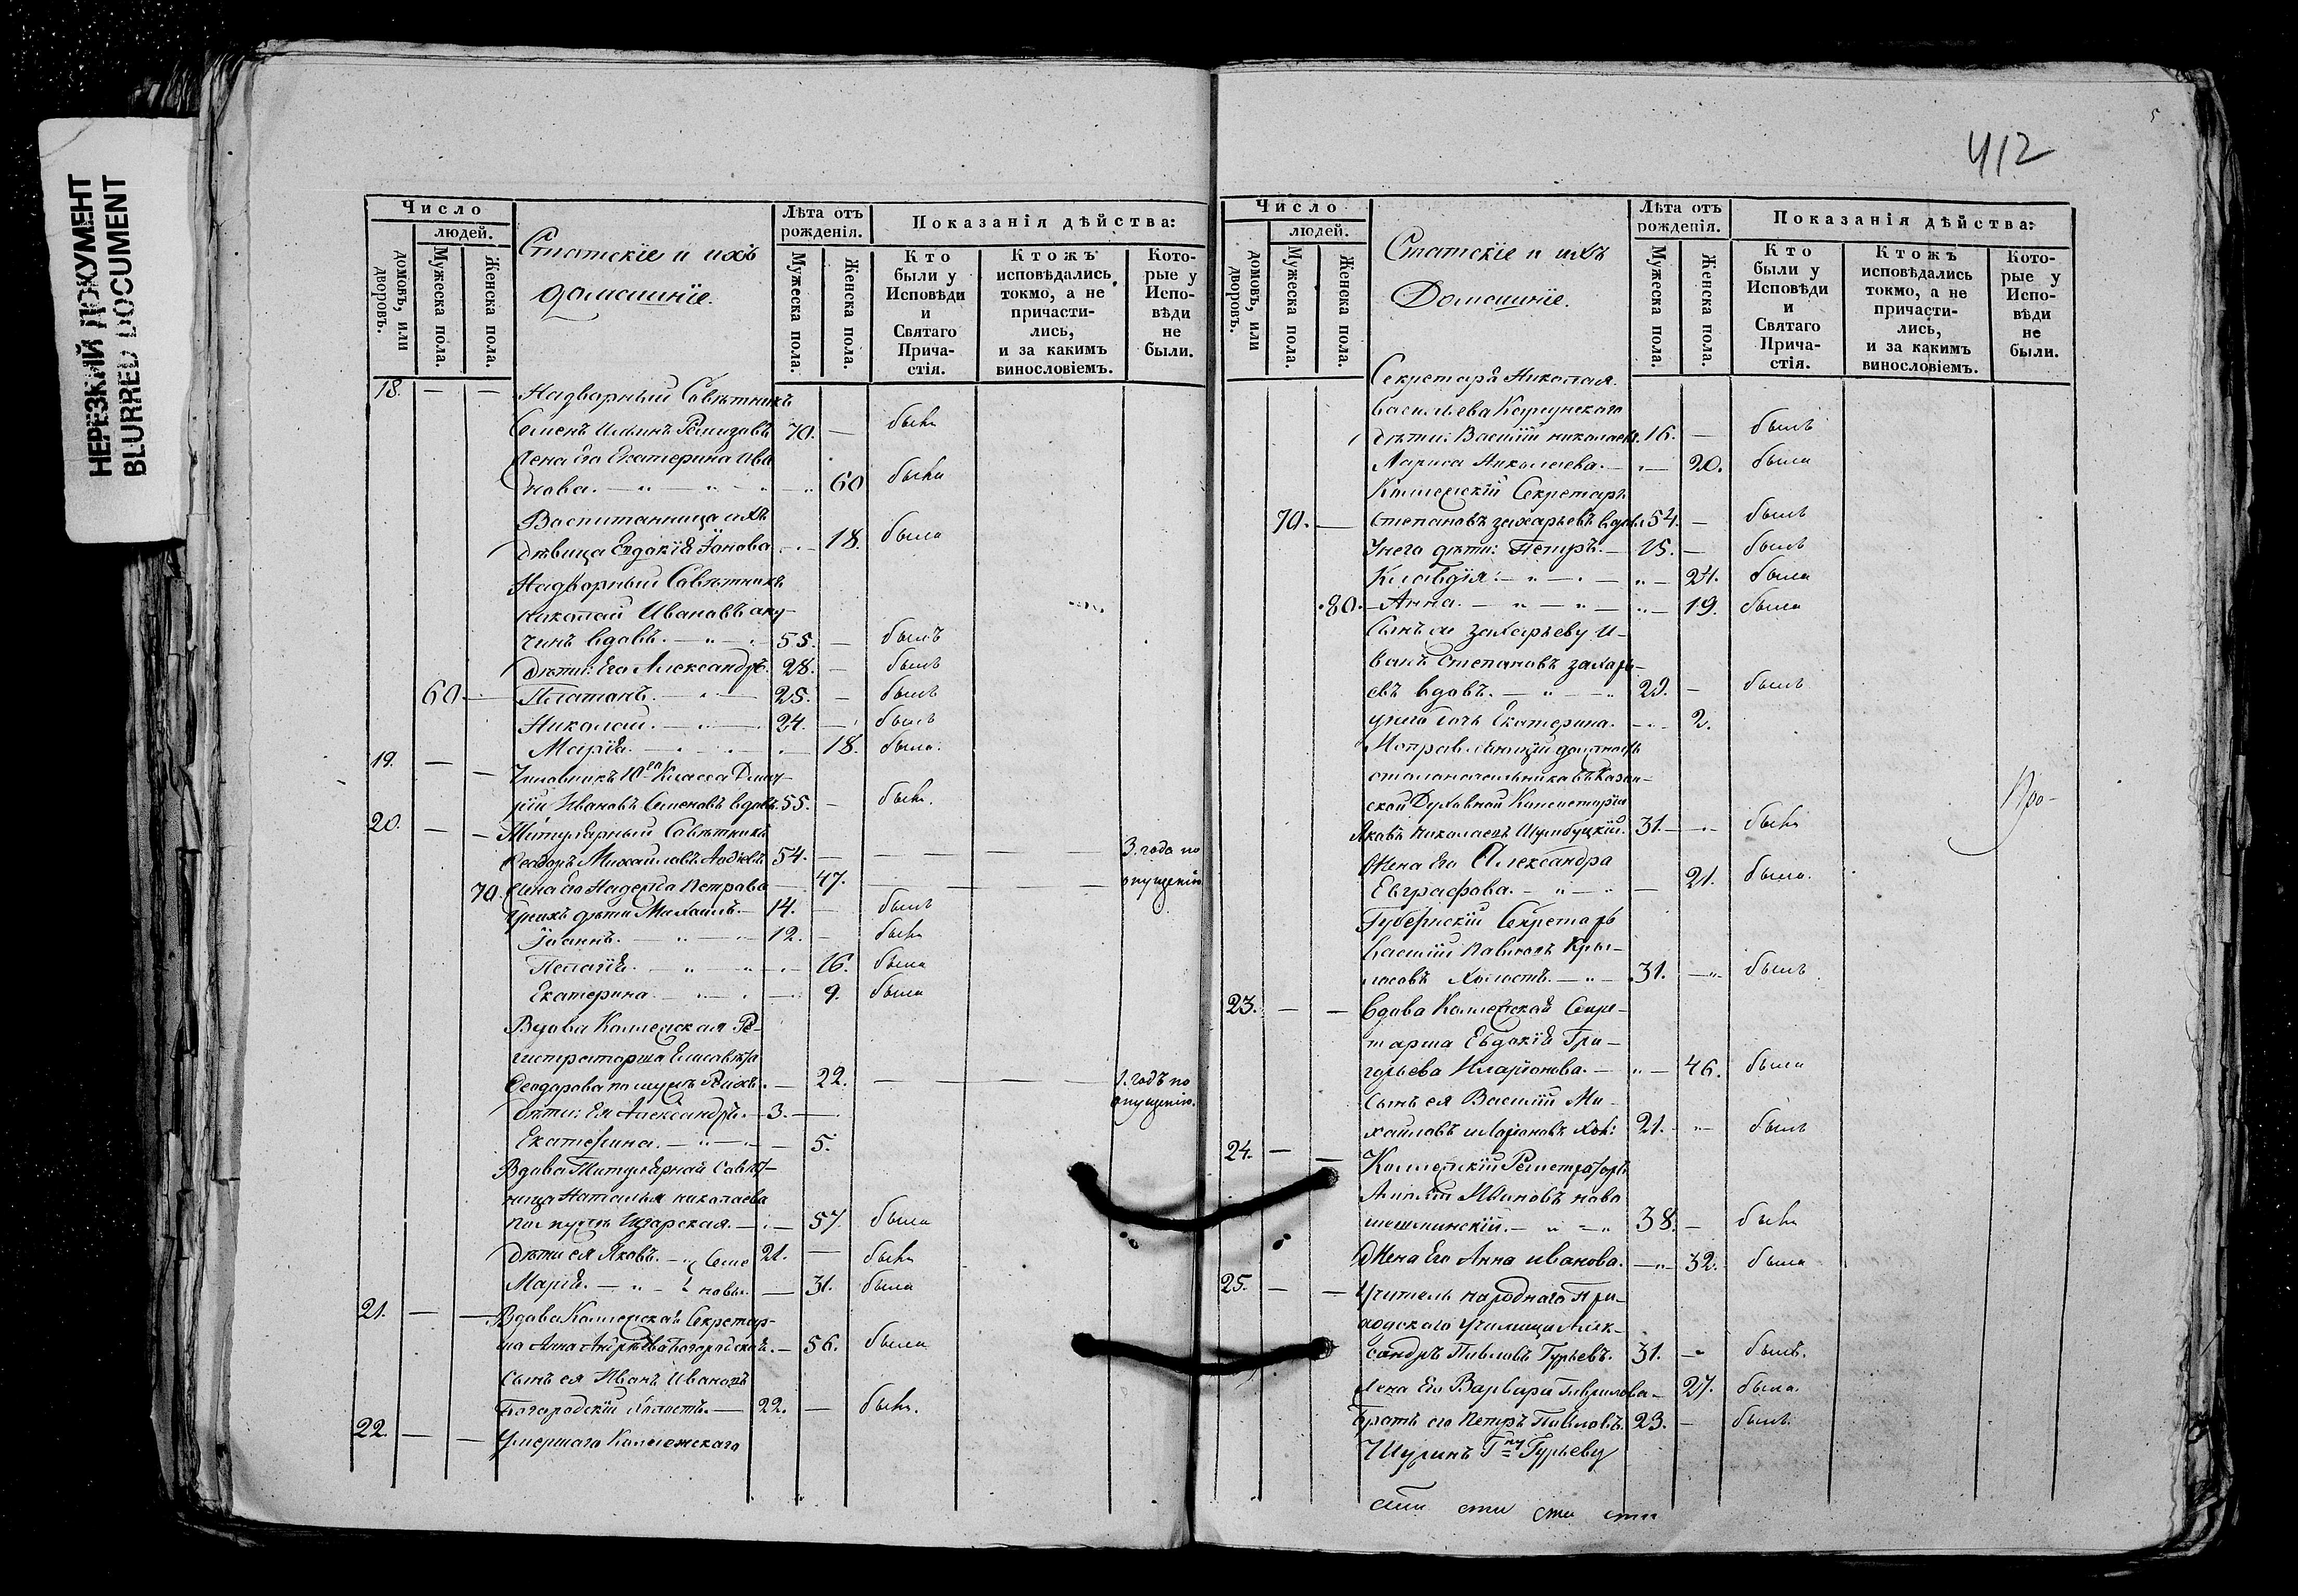 НЕРЕЗКИЙ ДОКУМЕНТ
BLURRED DOCUMENT
Число
людей.
домовъ, или дворовъ.
Мужеска пола.
Женска пола.
Статскіе и ихъ
домашніе.
Лѣта отъ рожденія.
Мужеска пола.
Женска пола.
Показанія дѣйства:
Кто были у Исповѣди и Святаго Прича-стія.
Ктожъ исповѣдались токмо, а не причасти-лись, и за какимъ винословіемъ.
Кото-рые у Испо-вѣди не были.
18. — — Надворный Совѣтникъ
Семенъ Ильинъ 70. — былъ
Жена Его Екатерина Ива
нова. — 60 была
Воспитанница ихъ
Дѣвица Евдокія 18. была
Надворный Совѣтникъ
Николай Ивановъ аку-
чинъ вдовъ. — 55. — былъ
Дѣти: Его Александръ. 28. — былъ
60 — Платонъ. — 25. — былъ
Николай. — 24. — былъ
Марія. — 18. была.
19. — — Чиновникъ 10го Класса Дмит-
рій Ивановъ Семеновъ вдовъ. 55. — былъ.
20. — — Титулярный Совѣтникъ
Ѳеодоръ Михайловъ 54. — — — — 3. года по
70. Жена Его Надежда Петрова — 47. — — — опущенію
У нихъ дѣти Михаилъ. — 14. — былъ
Іоаннъ. — 12. — былъ
Пелагія. — 16. была
Екатерина — 9. была
Вдова Коллежская Ре-
гистраторша Елисавета
Ѳеодорова по мужѣ — 22. — — — 1. годъ по
опущенію.
Дѣти: Ея Александръ. — 3. —
Екатерина. — 5.
Вдова Титулярная Совѣт-
ница Наталья Николаева
по мужѣ — 57. была
Дѣти ея Яковъ. — Семе 21. — былъ
Марія. — новы. — 31. была
21. — — Вдова Коллежская Секретар-
ша Анна Андреева Богородская. — 56. была
Сынъ ея Иванъ Ивановъ
Богородскій Холостъ. — 22. — былъ.
22. — — Умершаго Коллежскаго
412
Число
людей.
домовъ, или дворовъ.
Мужеска пола.
Женска пола.
Статскіе и ихъ
Домашніе.
Лѣта отъ рожденія.
Мужеска пола.
Женска пола.
Показанія дѣйства:
Кто были у Исповѣди и Святаго Прича-стія.
Ктожъ исповѣдались токмо, а не причасти-лись, и за какимъ винословіемъ.
Кото-рые у Испо-вѣди не были.
Секретаря Николая
Васильева
дѣти: Василій Николаевъ. 16. — былъ
Лариса Николаева. — 20. была
Коллежскій Секретарь
70. — Степановъ Захарьевъ вдовъ 54. — былъ
У него дѣти: Петръ. — 15. — былъ
Клавдія. — 24. была
80. — Анна. — 19. была
Сынъ Захарьеву И-
ванъ Степановъ Захарь-
евъ вдовъ. — 29. — былъ
у него дочь Екатерина. — 2.
Исправляющій должность
столоначальника въ Казан-
ской Духовной Консисторіи
Яковъ Николаевъ 31. — былъ
Жена Его Александра
Евграфова. — 21. была.
Губернскій Секретарь
Василій Павловъ Кры-
ласовъ Холостъ. — 31. — былъ
Про-
23. — — Вдова Коллежская Секре-
тарша Евдокія Гри-
горьева Иларіонова. — 46. была
Сынъ ея Василій Ми-
хайловъ Иларіоновъ Хол: 21. — былъ
24. — — Коллежскій Регистраторъ
Ивановъ ново
шешминскій. — 38. — былъ
Жена Его Анна Иванова. — 32. была
25. — — Учитель народнаго при-
ходскаго училища Алек-
сандръ Павловъ Гурьевъ. 31. — былъ.
Жена Его Варвара Гаврилова — 27. была.
Братъ его Петръ Павловъ. 23. — былъ
Шуринъ Гну Гурьеву